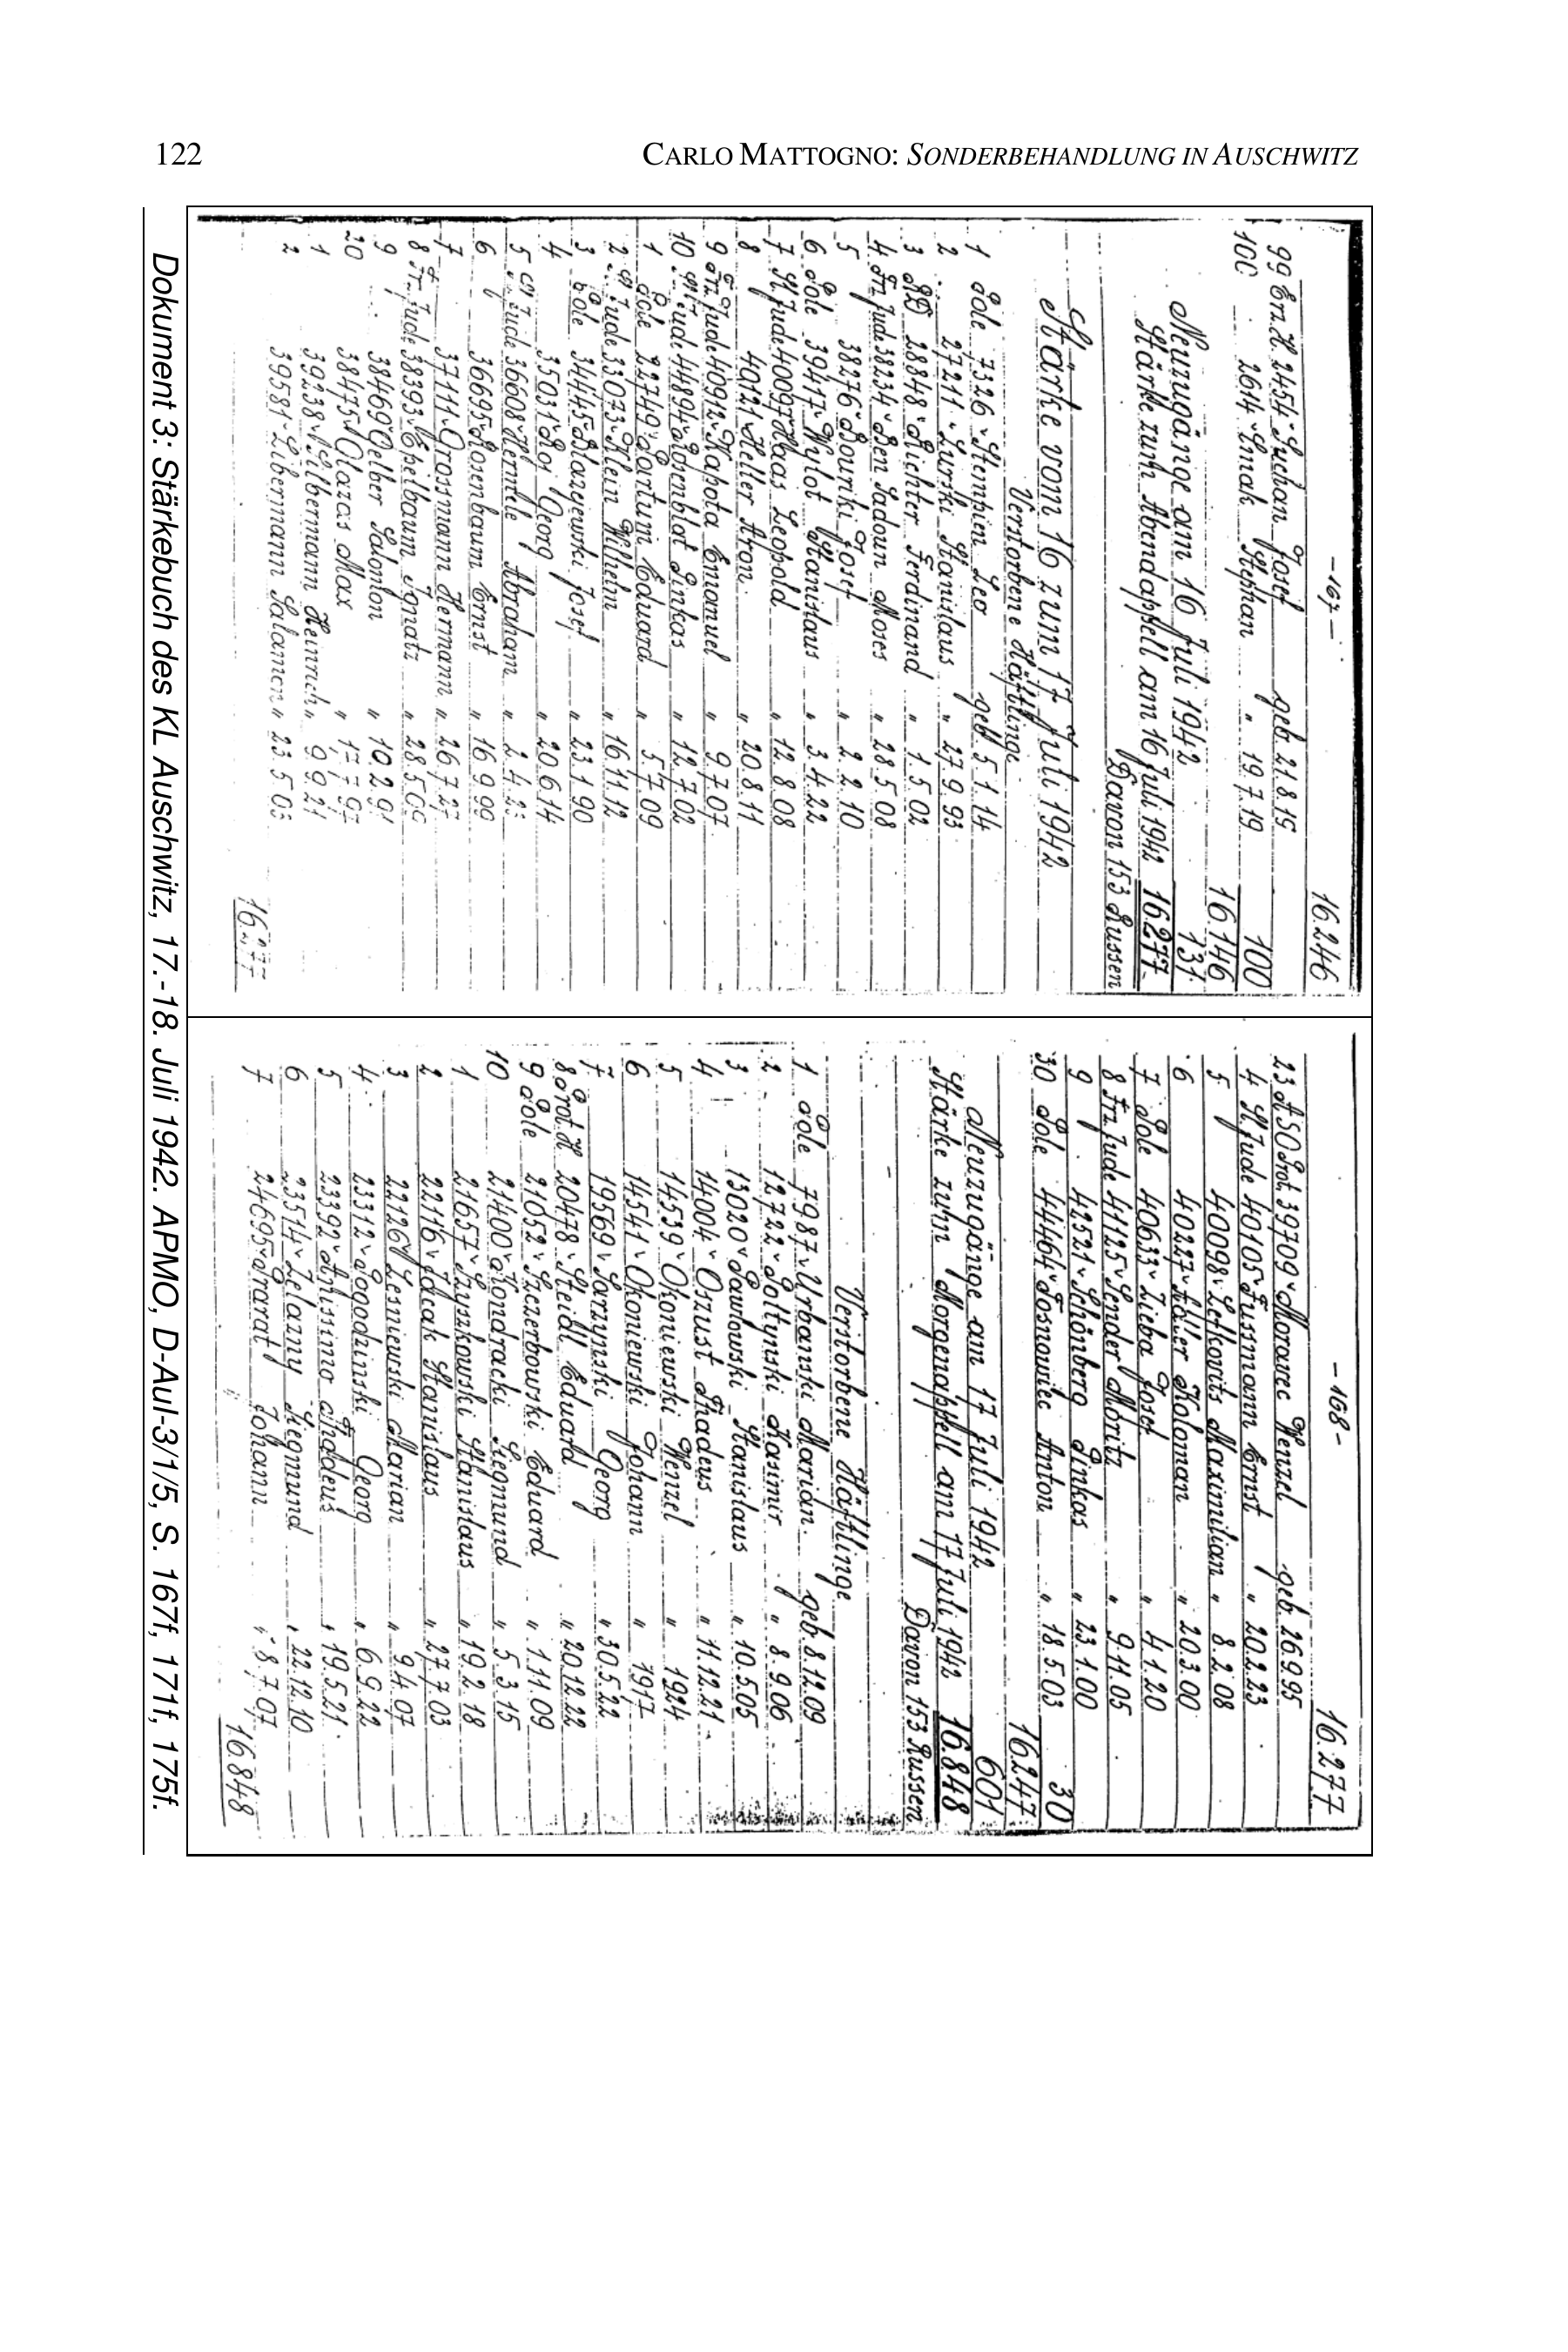 122
CARLO MATTOGNO: SONDERBEHANDLUNG IN AUSCHWITZ
-167-
16.246
99 2454 Suchan Josef geb. 21.8.15
100 2614 Stephan " 19.7.19 100
16.146
Neuzugänge am 16 Juli 1942 131.
Stärke zum Abendappell am 16 Juli 1942 16.277
Davon 153 Russen
Stärke vom 16 zum 17 Juli 1942
Verstorbene Häftlinge
1 Pole 7326 Stempien Leo geb. 5.1.14
2 27211 Gurski Stanislaus " 27.9.93
3 18848 Richter Ferdinand " 1.5.02
4 Frz Jude 38234 Ben Sadoun Moses " 28.5.08
5 38276 Bouriki Josef " 2.2.10
6 Pole 39417 Wylot Stanislaus " 3.4.22
7 Jude 40097 Haas Leopold " 12.8.08
8 40121 Heller Aron " 20.8.11
9 Frz Jude 40912 Kapota Emanuel " 9.7.07
10 Jude 44894 Rosenblat Pinkas " 12.7.02
1 Pole 22749 Bartum Eduard " 5.7.09
2 Jude 33073 Klein Wilhelm " 16.11.12
3 Pole 34445 Blazejewski Josef " 23.1.90
4 35031 Georg " 20.6.14
5 Jude 36608 Abraham " 2.4.23
6 36695 Rosenbaum Ernst " 16.9.99
7 37111 Grossmann Hermann " 26.7.27
8 Fr. Jude 38393 Epelbaum Ignatz "
9 38469 Gelber Salomon " 10.2.91
20 38475 Glazas Max "
1 39238 Silbermann Heinrich " 9.9.21
2 39581 Libermann Salamon " 23.5.03
16.277
-168-
16.277
23 39709 Moravec Wenzel geb. 26.9.95
4 Jude 40105 Fussmann Ernst " 20.2.23
5 40098 Lefkovits Maximilian " 8.2.08
6 40227 Adler Koloman " 20.3.00
7 Pole 40633 Zieba Josef " 4.1.20
8 Frz Jude 41125 Sender Moritz " 9.11.05
9 42521 Schönberg Pinkas " 23.1.00
30 Pole 44464 Sosnowiec Anton " 18.5.03 30
16.247
Neuzugänge am 17 Juli 1942 601
Stärke zum Morgenappell am 17 Juli 1942 16.848
Davon 153 Russen
Verstorbene Häftlinge
1 Pole 7987 Urbanski Marian geb. 8.12.09
2 12722 Soltynski Kasimir " 8.9.06
3 13020 Pawlowski Stanislaus " 10.5.05
4 14004 Oszust Thadeus " 11.12.21
5 14539 Okoniewski Wenzel " 1924
6 14541 Okoniewski Johann " 1917
7 19569 Sarzynski Georg " 30.5.22
8 20478 Steidl Eduard " 20.12.22
9 Pole 21052 Szczerbowski Eduard " 1.11.09
10 21400 Kondracki Siegmund " 5.3.15
1 21657 Szyszkowski Stanislaus " 19.2.18
2 22116 Stanislaus " 27.7.03
3 22126 Lesniewski Marian " 9.4.07
4 23312 Pogodzinski Georg " 6.9.22
5 23392 Thaddeus " 19.5.21
6 23514 Zelazny Siegmund " 22.12.10
7 24695 Johann " 8.7.07
16.848
Dokument 3: Stärkebuch des KL Auschwitz, 17.-18. Juli 1942. APMO, D-AuI-3/1/5, S. 167f, 171f, 175f.